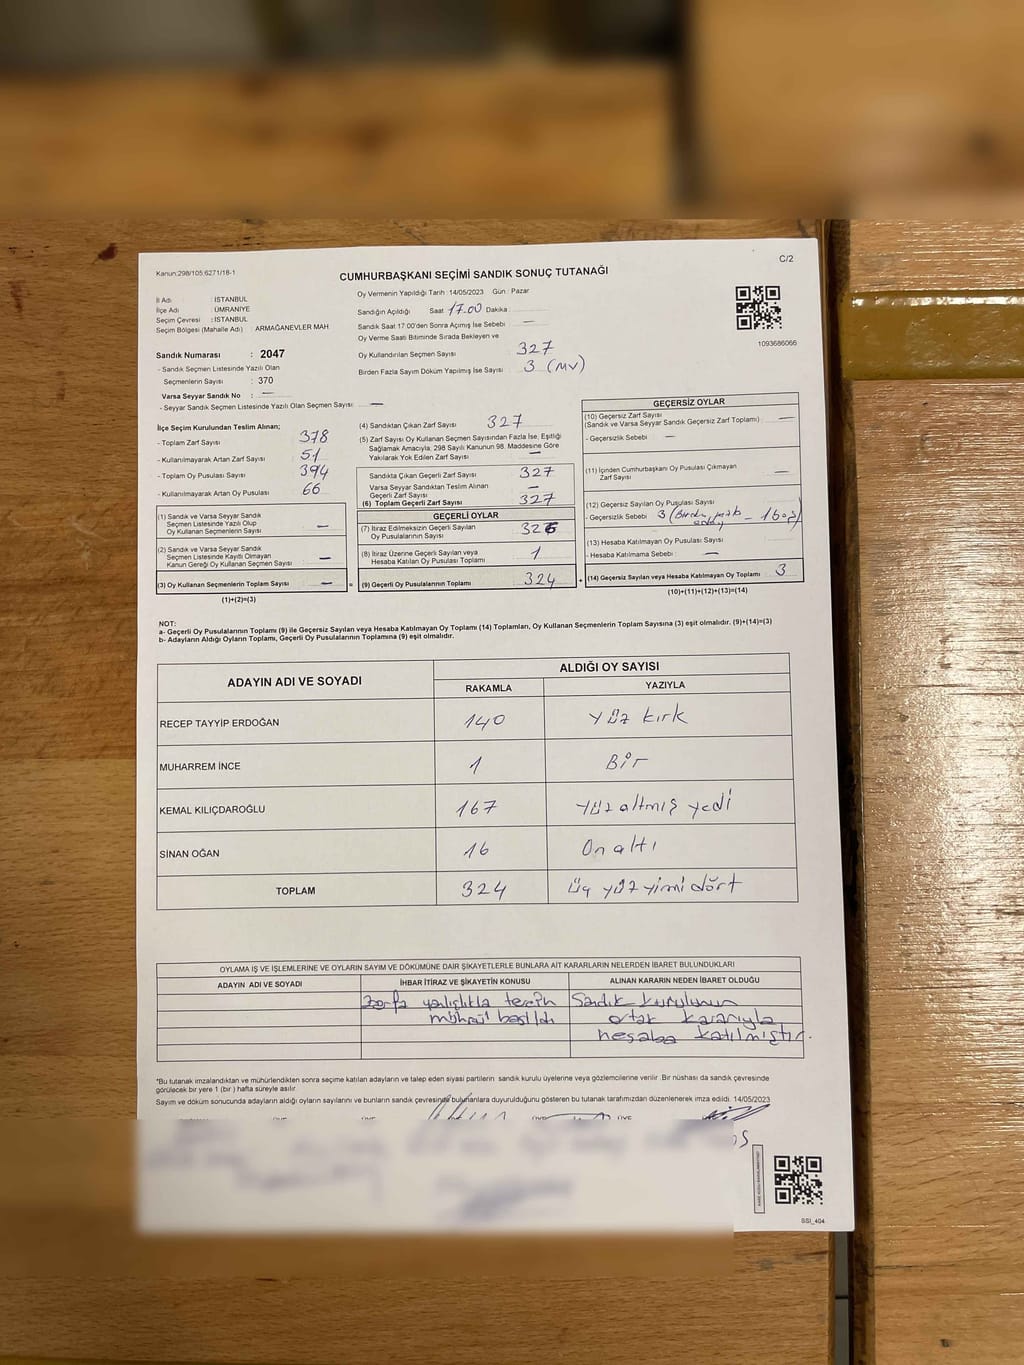 Kanun:298/105;6271/18-1
C/2
CUMHURBAŞKANI SEÇİMİ SANDIK SONUÇ TUTANAĞI
İl Adı : İSTANBUL
İlçe Adı : ÜMRANİYE
Seçim Çevresi : İSTANBUL
Seçim Bölgesi (Mahalle Adı) : ARMAĞANEVLER MAH
Sandık Numarası : 2047
- Sandık Seçmen Listesinde Yazılı Olan
Seçmenlerin Sayısı : 370
Varsa Seyyar Sandık No : —
- Seyyar Sandık Seçmen Listesinde Yazılı Olan Seçmen Sayısı: —
Oy Vermenin Yapıldığı Tarih : 14/05/2023 Gün : Pazar
Sandığın Açıldığı Saat 17.00 Dakika :
Sandık Saat 17:00'den Sonra Açımış İse Sebebi : —
Oy Verme Saati Bitiminde Sırada Bekleyen ve
Oy Kullandırılan Seçmen Sayısı : 327
Birden Fazla Sayım Döküm Yapılmış İse Sayısı : 3 (MV)
1093686066
İlçe Seçim Kurulundan Teslim Alınan;
- Toplam Zarf Sayısı : 378
- Kullanılmayarak Artan Zarf Sayısı : 51
- Toplam Oy Pusulası Sayısı : 394
- Kullanılmayarak Artan Oy Pusulası : 66
(1) Sandık ve Varsa Seyyar Sandık
Seçmen Listesinde Yazılı Olup
Oy Kullanan Seçmenlerin Sayısı —
(2) Sandık ve Varsa Seyyar Sandık
Seçmen Listesinde Kayıtlı Olmayan
Kanun Gereği Oy Kullanan Seçmen Sayısı —
(3) Oy Kullanan Seçmenlerin Toplam Sayısı — =
(1)+(2)=(3)
(4) Sandıktan Çıkan Zarf Sayısı : 327
(5) Zarf Sayısı Oy Kullanan Seçmen Sayısından Fazla İse, Eşitliği
Sağlamak Amacıyla, 298 Sayılı Kanunun 98. Maddesine Göre
Yakılarak Yok Edilen Zarf Sayısı : —
Sandıkta Çıkan Geçerli Zarf Sayısı : 327
Varsa Seyyar Sandıktan Teslim Alınan
Geçerli Zarf Sayısı : —
(6) Toplam Geçerli Zarf Sayısı : 327
GEÇERLİ OYLAR
(7) İtiraz Edilmeksizin Geçerli Sayılan
Oy Pusulasının Sayısı :
(8) İtiraz Üzerine Geçerli Sayılan veya
Hesaba Katılan Oy Pusulası Toplamı : 1
(9) Geçerli Oy Pusulalarının Toplamı : 324 +
GEÇERSİZ OYLAR
(10) Geçersiz Zarf Sayısı
(Sandık ve Varsa Seyyar Sandık Geçersiz Zarf Toplamı) : —
- Geçersizlik Sebebi : —
(11) İçinden Cumhurbaşkanı Oy Pusulası Çıkmayan
Zarf Sayısı : —
(12) Geçersiz Sayılan Oy Pusulası Sayısı
- Geçersizlik Sebebi : 3 (Birden - 1 boş)
(13) Hesaba Katılmayan Oy Pusulası Sayısı :
- Hesaba Katılmama Sebebi : —
(14) Geçersiz Sayılan veya Hesaba Katılmayan Oy Toplamı : 3
(10)+(11)+(12)+(13)=(14)
NOT:
a- Geçerli Oy Pusulalarının Toplamı (9) ile Geçersiz Sayılan veya Hesaba Katılmayan Oy Toplamı (14) Toplamları, Oy Kullanan Seçmenlerin Toplam Sayısına (3) eşit olmalıdır. (9)+(14)=(3)
b- Adayların Aldığı Oyların Toplamı, Geçerli Oy Pusulalarının Toplamına (9) eşit olmalıdır.
ADAYIN ADI VE SOYADI ALDIĞI OY SAYISI
RAKAMLA YAZIYLA
RECEP TAYYİP ERDOĞAN 140 Yüz kırk
MUHARREM İNCE 1 Bir
KEMAL KILIÇDAROĞLU 167 Yüz altmış yedi
SİNAN OĞAN 16 On altı
TOPLAM 324 üç yüz yirmi dört
OYLAMA İŞ VE İŞLEMLERİNE VE OYLARIN SAYIM VE DÖKÜMÜNE DAİR ŞİKAYETLERLE BUNLARA AİT KARARLARIN NELERDEN İBARET BULUNDUKLARI
ADAYIN ADI VE SOYADI İHBAR İTİRAZ VE ŞİKAYETİN KONUSU ALINAN KARARIN NEDEN İBARET OLDUĞU
Zarfa yanlışlıkla tercih Sandık kurulunun
mührü basıldı ortak kararıyla
hesaba katılmıştır.
*Bu tutanak imzalandıktan ve mühürlendikten sonra seçime katılan adayların ve talep eden siyasi partilerin sandık kurulu üyelerine veya gözlemcilerine verilir. Bir nüshası da sandık çevresinde
görülecek bir yere 1 (bir ) hafta süreyle asılır.
Sayım ve döküm sonucunda adayların aldığı oyların sayılarını ve bunların sandık çevresinde bulunanlara duyurulduğunu gösteren bu tutanak tarafımızdan düzenlenerek imza edildi. 14/05/2023
SSI_404